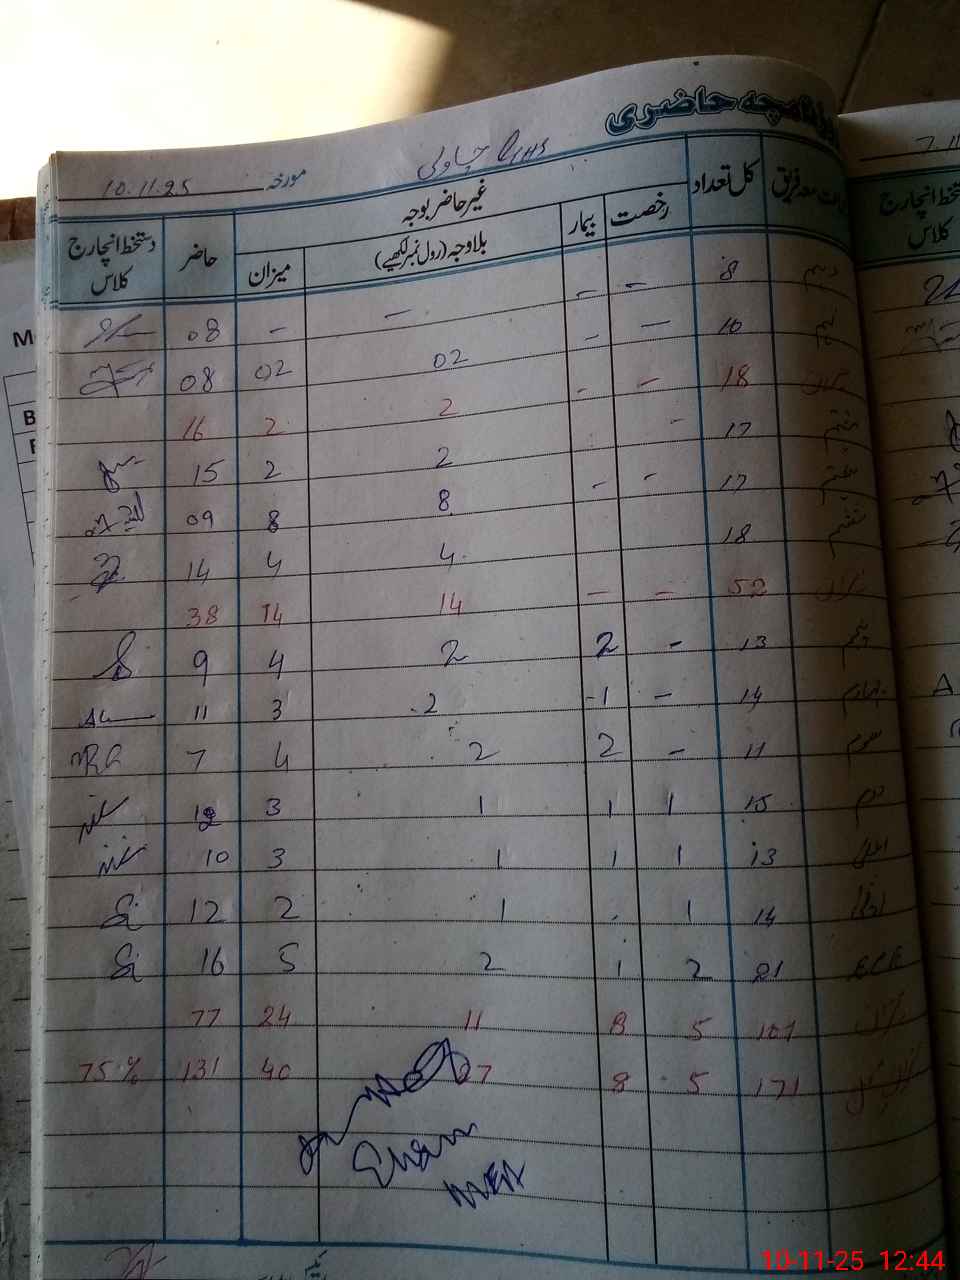 روزنامچہ حاضری
مورخہ 10.11.25 GHS چاولی
کل تعداد رخصت بیمار غیر حاضر بوجہ حاضر دستخط انچارج کلاس
بلاوجہ (رول نمبر لکھیے) میزان
دہم 8 – – – – 08
نہم 10 – – 02 02 08
میزان 18 – - 2 2 16
ہشتم 17 - 2 2 15
ہفتم 17 - - 8 8 09
ششم 18 4 4 14
میزان 52 – – 14 14 38
پنجم 13 - 2 2 4 9
چہارم 14 – 1 2 3 11
سوم 11 – 2 2 4 7
دوم 15 1 1 1 3 12
اول 13 1 1 1 3 10
ادنیٰ 14 1 . 1 2 12
ECE 21 2 1 2 5 16
میزان 101 5 8 11 24 77
171 5 8 27 40 131 75%
7.11
دستخط انچارج کلاس
M
B
A
10-11-25 12:44